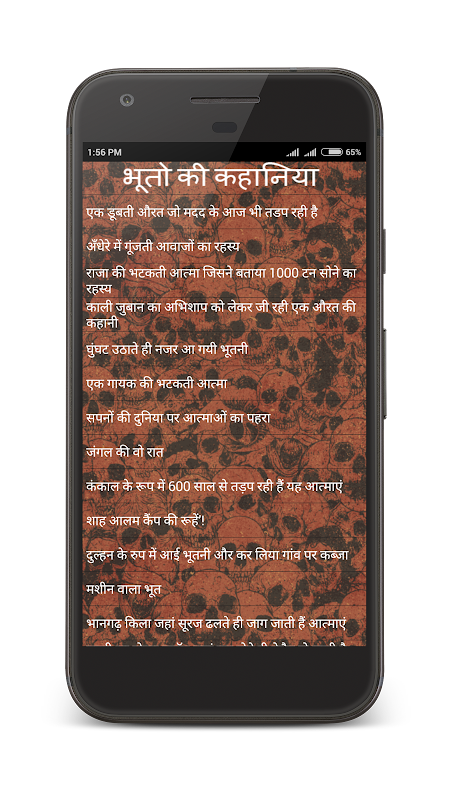 1:56 PM 65%
भूतो की कहानिया
एक डूबती औरत जो मदद के आज भी तडप रही है
अँधेरे में गूंजती आवाजों का रहस्य
राजा की भटकती आत्मा जिसने बताया 1000 टन सोने का
रहस्य
काली जुबान का अभिशाप को लेकर जी रही एक औरत की
कहानी
घुंघट उठाते ही नजर आ गयी भूतनी
एक गायक की भटकती आत्मा
सपनों की दुनिया पर आत्माओं का पहरा
जंगल की वो रात
कंकाल के रूप में 600 साल से तड़प रही हैं यह आत्माएं
शाह आलम कैंप की रूहें'!
दुल्हन के रुप में आई भूतनी और कर लिया गांव पर कब्जा
मशीन वाला भूत
भानगढ़ किला जहां सूरज ढलते ही जाग जाती हैं आत्माएं